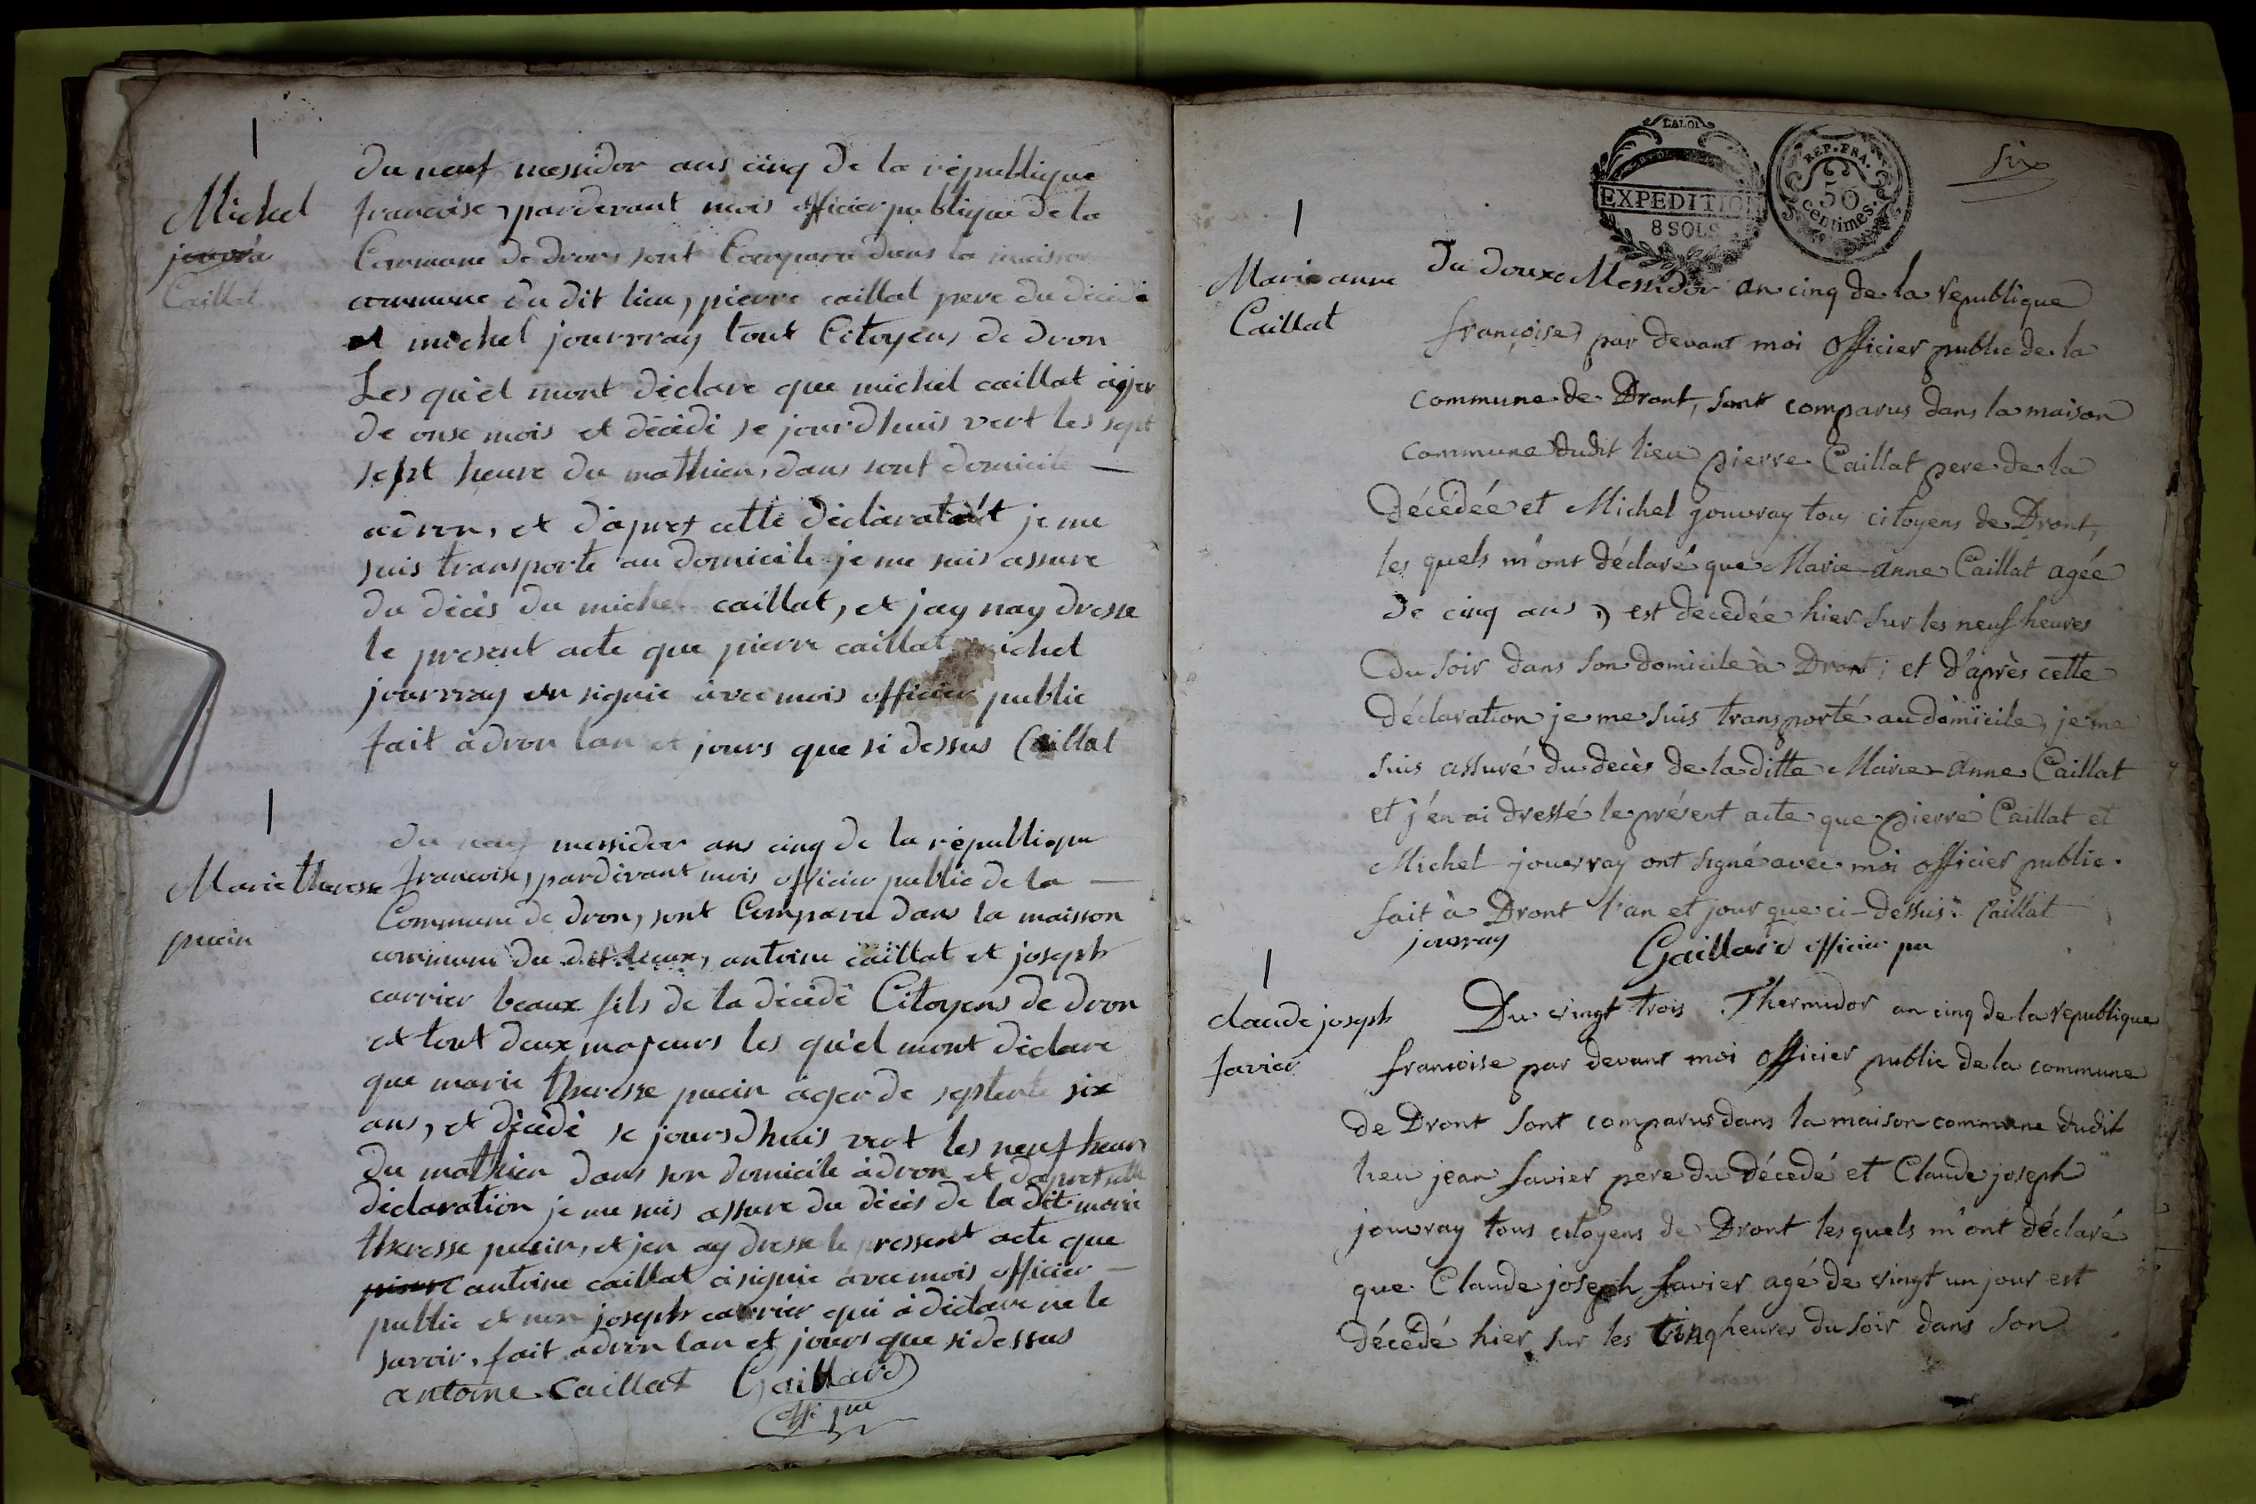 Michel
jouvra
Caillat
du neuf messidor ans cinq de la république
francoise, pardevant mois officier publique de la
Commune de dron sont Comparu dans la maison
commune du dit lieu, pierre caillat pere du décédé
et michel jouvray tout Citoyens de dron
Les qu'el mont déclare que michel caillat ager
de onse mois et décédé se jourdhuis vert les sept
sept heure du mathien, dans sont domicile —
adron, et d'apret cette déclaration je me
suis transporte au domicile je me suis assure
du décès du michel caillat, et jay nay dresse
le present acte que pierre caillat michel
jouvray on signie avec mois officier public
fait a dron lan et jours que si dessus Caillat
Marie theresse
pucin
du neuf messidor ans cinq de la république
francoise, pardevant mois officier public de la —
Commune de dron, sont Comparu dans la maisson
commune du dit lieux, antoine caillat et joseph
carrier beaux fils de la décédé Citoyens de dron
et tout deux majeurs les qu'el mont déclare
que marie theresse pucin ager de septente six
ans, et décédé se jours dhuis vert les neuf heure
du mathien dans son domicile à dron et dapret cette
déclaration je me suis assure du décès de la dit marie
theresse pucin, et jen ay dresse le pressent acte que
pierre antoine caillat à signie avec mois officier —
public et non joseph carrier qui à déclare ne le
savoir, fait adron lan et jours que si dessus
antoine Caillat Gaillard
offi pu
LA LOI
EXPEDITION
8 SOLS
REP. FRA.
50
centimes.
six
Marie anne
Caillat
Du douze Messidor an cinq de la republique
françoise, par devant moi Officier public de la
commune de Dront, sont comparus dans la maison
commune dudit lieu pierre Caillat pere de la
décédée et Michel jouvray tous citoyens de Dront,
les quels m'ont déclaré que Marie-anne Caillat agée
de cinq ans, est decedée hier sur les neuf heures
du soir dans son domicile à Dront; et d'après cette
déclaration je me suis transporté au domicile, je me
suis assuré du decès de la ditte Marie-anne Caillat
et j'en ai dressé le présent acte que pierre Caillat et
Michel jouvray ont signé avec moi officier public.
fait à Dront l'an et jour que ci-dessus. Caillat
jouvray Gaillard officier pu
claude joseph
favier
Du vingt trois Thermidor an cinq de la republique
francoise par devant moi officier public de la commune
de Dront sont comparus dans la maison commune dudit
lieu jean favier pere du décedé et Claude joseph
jouvray tous citoyens de Dront lesquels m'ont déclaré
que Claude joseph favier agé de vingt un jour est
décedé hier sur les cinq heures du soir dans son